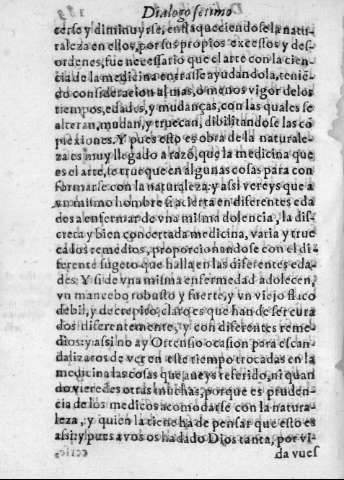 Dialogo setimo
cerse y diminuyrse, enflaqueciendose la natu-
raleza en ellos, por sus propios excessos y des-
ordenes, fue necessario que el arte con la cien-
cia de la medicina entrasse ayudandola, teniē-
do consideracion al mas, o menos vigor de los
tiempos, edades, y mudanças, con las quales se
alteran, mudan, y truecan, dibilitandose las cō
plexiones. Y pues esto es obra de la naturale-
za es muy llegado a razō, que la medicina que
es el arte, se trueque en algunas cosas para con
formarse con la naturaleza: y assi vereys que a
vn mismo hombre si acierta en diferentes eda
des a enfermar de vna misma dolencia, la dis-
creta y bien concertada medicina, varia y true
ca los remedios, proporcionandose con el di-
ferente sugeto que halla en las diferentes eda-
des. Y si de vna misma enfermedad adolecen,
vn mancebo robusto y fuerte, y vn viejo flaco
debil, y decrepito, claro es que han de ser cura
dos diferentemente, y con diferentes reme-
dios: y assi no ay Ortensio ocasion para escan-
dalizaros de ver en este tiempo trocadas en la
medicina las cosas que aueys referido, ni quan
do vieredes otras muchas, porque es pruden-
cia de los medicos acomodarse con la natura-
leza, y quien la tiene ha de pensar que esto es
assi: y pues a vos os ha dado Dios tanta, por vi-
da vues